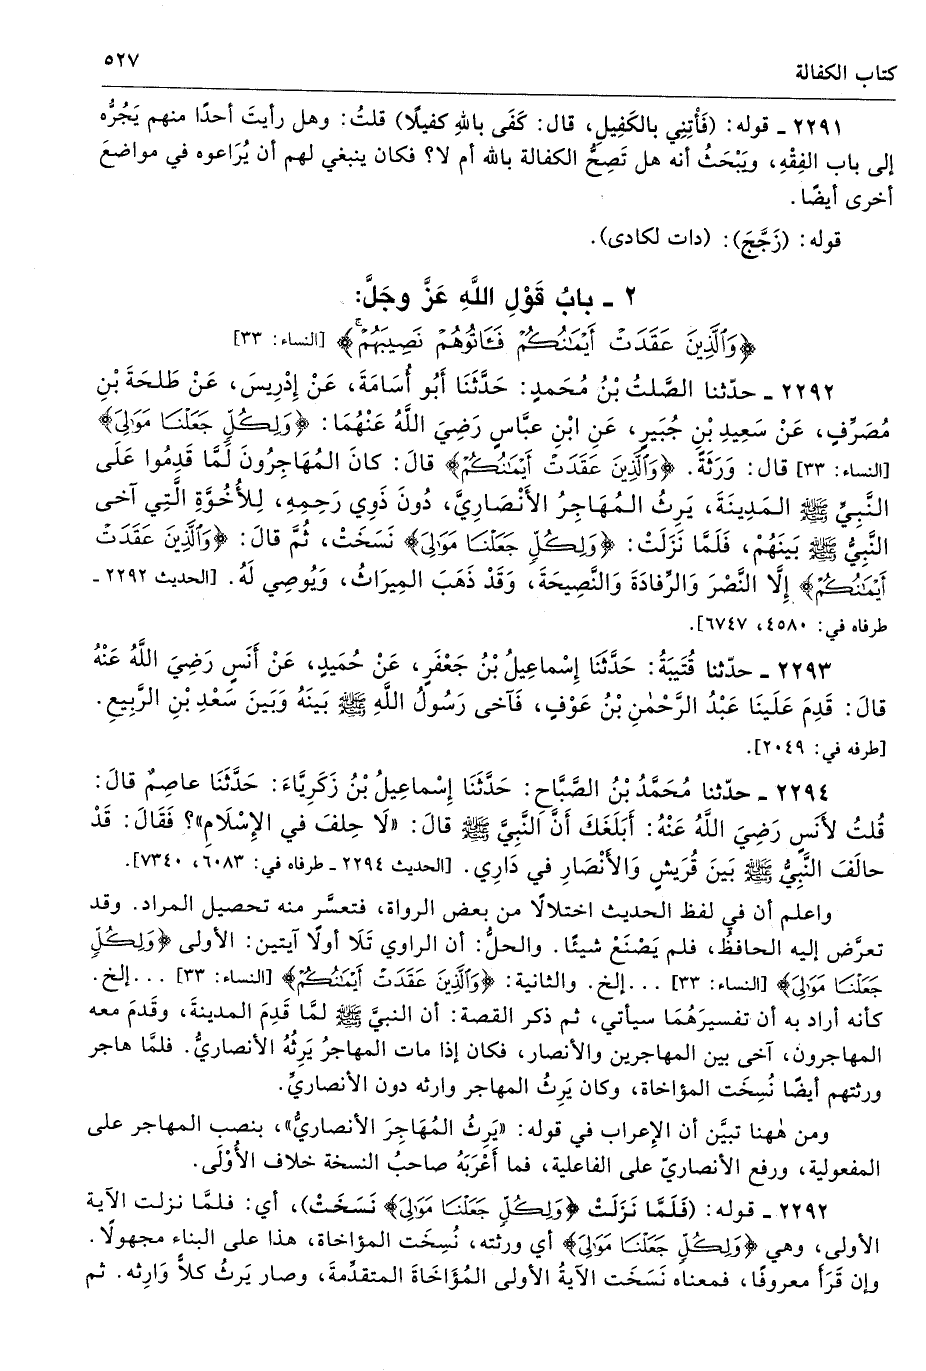 كتاب الكفالة ٥٢٧
٢٢٩١ ـ قوله: (فَأْتِنِي بالكَفِيلِ، قال: كَفَى بالله كفيلًا) قلتُ: وهل رأيتَ أحدًا منهم يَجُرُّه
إلى باب الفِقْهِ، ويَبْحَثُ أنه هل تَصِحُّ الكفالة بالله أم لا؟ فكان ينبغي لهم أن يُرَاعوه في مواضعَ
أخرى أيضًا.
قوله: (زَجَّجَ): (دات لكادى).
٢ ـ بابُ قَوْلِ اللَّهِ عَزَّ وجَلَّ:
﴿وَٱلَّذِينَ عَقَدَتْ أَيْمَٰنُكُمْ فَـَٔاتُوهُمْ نَصِيبَهُمْ ۚ﴾ [النساء: ٣٣]
٢٢٩٢ ـ حدّثنا الصَّلتُ بْنُ مُحَمدٍ: حَدَّثَنَا أَبُو أُسَامَةَ، عَنْ إِدْرِيسَ، عَنْ طَلحَةَ بْنِ
مُصَرِّفٍ، عَنْ سَعِيدِ بْنِ جُبَيرٍ، عَنِ ابْنِ عبَّاسٍ رَضِيَ اللَّهُ عَنْهُمَا: ﴿وَلِكُلٍّ جَعَلْنَا مَوَٰلِىَ﴾
[النساء: ٣٣] قال: وَرَثَةً. ﴿وَٱلَّذِينَ عَقَدَتْ أَيْمَٰنُكُمْ﴾ قالَ: كانَ المُهَاجِرُونَ لَمَّا قَدِمُوا عَلَى
النَّبِيِّ ﷺ المَدِينَةَ، يَرِثُ المُهَاجِرُ الأَنْصَارِيَّ، دُونَ ذَوِي رَحِمِهِ، لِلأُخُوَّةِ الَّتِي آخى
النَّبِيُّ ﷺ بَينَهُمْ، فَلَمَّا نَزَلَتْ: ﴿وَلِكُلٍّ جَعَلْنَا مَوَٰلِىَ﴾ نَسَخَتْ، ثُمَّ قالَ: ﴿وَٱلَّذِينَ عَقَدَتْ
أَيْمَٰنُكُمْ﴾ إِلَّا النَّصْرَ وَالرِّفادَةَ وَالنَّصِيحَةَ، وَقَدْ ذَهَبَ المِيرَاثُ، وَيُوصِي لَهُ. [الحديث ٢٢٩٢ ـ
طرفاه في: ٤٥٨٠، ٦٧٤٧].
٢٢٩٣ ـ حدّثنا قُتَيبَةُ: حَدَّثَنَا إِسْماعِيلُ بْنُ جَعْفَرٍ، عَنْ حُمَيدٍ، عَنْ أَنَسٍ رَضِيَ اللَّهُ عَنْهُ
قالَ: قَدِمَ عَلَينَا عَبْدُ الرَّحْمٰنِ بْنُ عَوْفٍ، فَآخى رَسُولُ اللَّهِ ﷺ بَينَهُ وَبَينَ سَعْدِ بْنِ الرَّبِيعِ.
[طرفه في: ٢٠٤٩].
٢٢٩٤ ـ حدّثنا مُحَمَّدُ بْنُ الصَّبَّاحِ: حَدَّثَنَا إِسْماعِيلُ بْنُ زَكَرِيَّاءَ: حَدَّثَنَا عاصِمٌ قالَ:
قُلتُ لأَنَسٍ رَضِيَ اللَّهُ عَنْهُ: أَبَلَغَكَ أَنَّ النَّبِيَّ ﷺ قالَ: «لَا حِلفَ في الإِسْلَامِ»؟ فَقَالَ: قَدْ
حالَفَ النَّبِيُّ ﷺ بَينَ قُرَيشٍ وَالأَنْصَارِ في دَارِي. [الحديث ٢٢٩٤ ـ طرفاه في: ٦٠٨٣، ٧٣٤٠].
واعلم أن في لفظ الحديث اختلالًا من بعض الرواة، فتعسَّر منه تحصيل المراد. وقد
تعرَّض إليه الحافظُ، فلم يَصْنَعْ شيئًا. والحلُّ: أن الراوي تَلَا أولًا آيتين: الأولى ﴿وَلِكُلٍّ
جَعَلْنَا مَوَٰلِىَ﴾ [النساء: ٣٣] ...إلخ. والثانية: ﴿وَٱلَّذِينَ عَقَدَتْ أَيْمَٰنُكُمْ﴾ [النساء: ٣٣] ...إلخ.
كأنه أراد به أن تفسيرَهُمَا سيأتي، ثم ذكر القصة: أن النبيَّ ﷺ لمَّا قَدِمَ المدينةَ، وقَدمَ معه
المهاجرون، آخى بين المهاجرين والأنصار، فكان إذا مات المهاجرُ يَرِثُهُ الأنصاريُّ. فلمَّا هاجر
ورثتهم أيضًا نُسِخَت المؤاخاة، وكان يَرِثُ المهاجر وارثه دون الأنصاريِّ.
ومن ههنا تبيَّن أن الإعراب في قوله: «يَرِثُ المُهَاجِرَ الأنصاريُّ»، بنصب المهاجر على
المفعولية، ورفع الأنصاريّ على الفاعلية، فما أعْرَبَهُ صاحبُ النسخة خلاف الأَوْلَى.
٢٢٩٢ ـ قوله: (فَلَمَّا نَزَلَتْ ﴿وَلِكُلٍّ جَعَلْنَا مَوَٰلِىَ﴾ نَسَخَتْ)، أي: فلمَّا نزلت الآية
الأولى، وهي ﴿وَلِكُلٍّ جَعَلْنَا مَوَٰلِىَ﴾ أي ورثته، نُسِخَت المؤاخاة، هذا على البناء مجهولًا.
وإن قَرَأَ معروفًا، فمعناه نَسَخَت الآيةُ الأولى المُؤَاخَاةَ المتقدِّمة، وصار يَرثُ كلاًّ وَارِثه. ثم